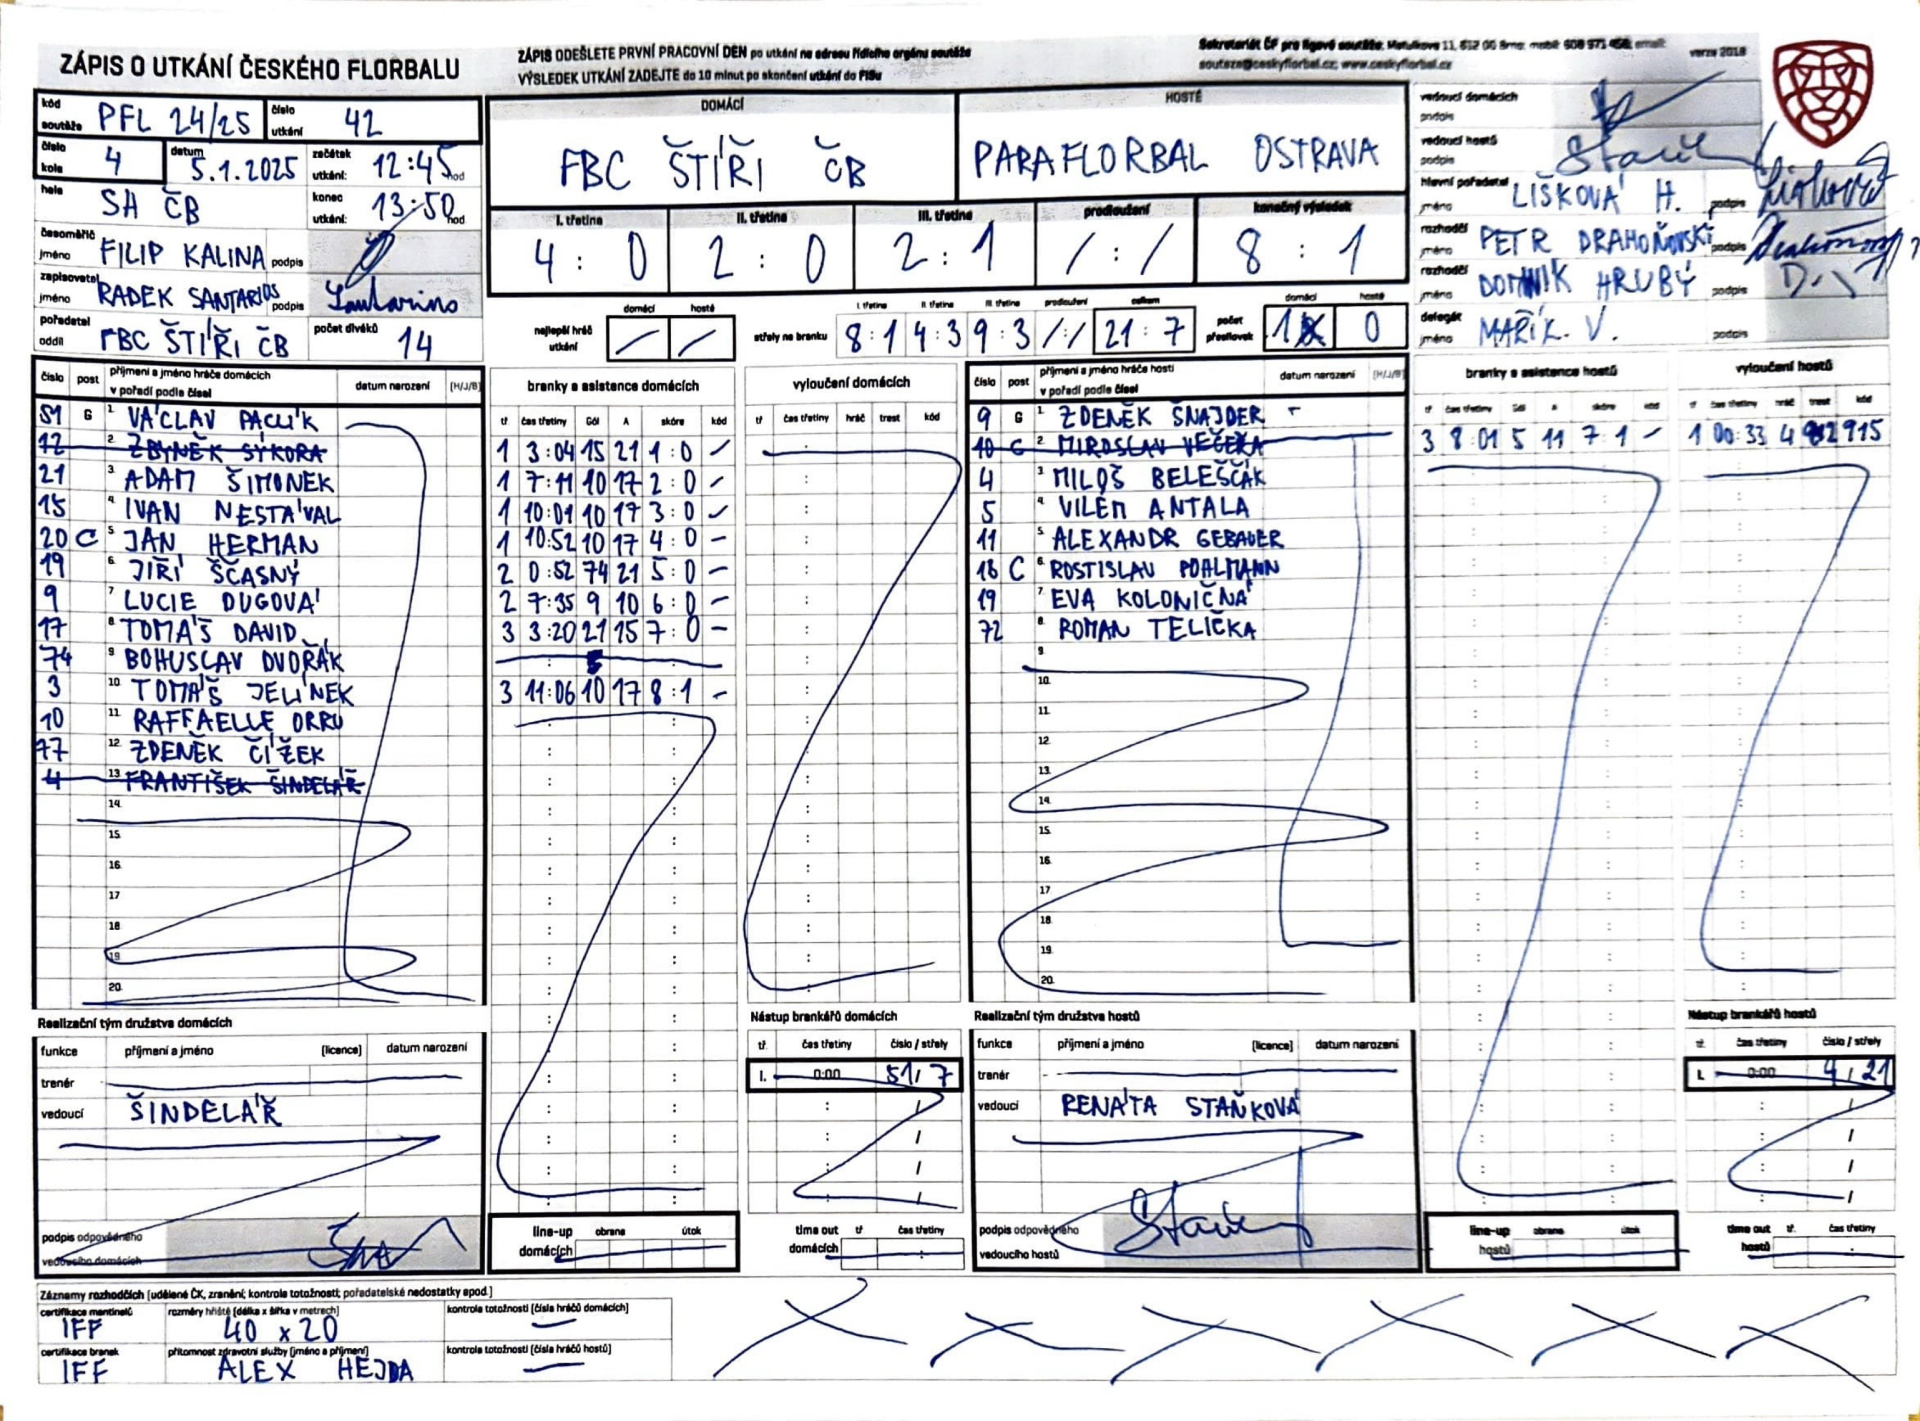 ZÁPIS O UTKÁNÍ ČESKÉHO FLORBALU
ZÁPIS ODEŠLETE PRVNÍ PRACOVNÍ DEN po utkání na adresu řídícího orgánu soutěže
VÝSLEDEK UTKÁNÍ ZADEJTE do 10 minut po skončení utkání do FISu
Sekretariát ČF pro ligové soutěže: Matulkova 11, 612 00 Brno; mobil: 608 971 458; email:
souteze@ceskyflorbal.cz; www.ceskyflorbal.cz
verze 2018
kód soutěže PFL 24/25 číslo utkání 42
číslo kola 4 datum 5.1.2025 začátek utkání: 12:45 hod
hala SH ČB konec utkání: 13:50 hod
časoměřič jméno FILIP KALINA podpis
zapisovatel jméno RADEK SANTARIOS podpis
pořadatel oddíl FBC ŠTÍŘI ČB počet diváků 14
DOMÁCÍ
FBC ŠTÍŘI ČB
HOSTÉ
PARAFLORBAL OSTRAVA
I. třetina II. třetina III. třetina prodloužení konečný výsledek
4 : 0 2 : 0 2 : 1 / : / 8 : 1
domácí hosté
nejlepší hráč utkání / /
I. třetina II. třetina III. třetina prodloužení celkem
střely na branku 8 : 1 4 : 3 9 : 3 / : / 21 : 7
domácí hosté
počet přesilovek 1 0
vedoucí domácích podpis
vedoucí hostů podpis
hlavní pořadatel jméno LIŠKOVÁ H. podpis
rozhodčí jméno PETR DRAHOŇOVSKÝ podpis
rozhodčí jméno DOMINIK HRUBÝ podpis
delegát jméno MAŘÍK V. podpis
číslo post příjmení a jméno hráče domácích v pořadí podle čísel datum narození [H/J/B]
51 G 1. VÁCLAV PACLÍK
12 2. ZBYNĚK SÝKORA
21 3. ADAM ŠIMONEK
15 4. IVAN NESTÁVAL
20 C 5. JAN HERMAN
19 6. JIŘÍ ŠČASNÝ
9 7. LUCIE DUGOVÁ
17 8. TOMÁŠ DAVID
74 9. BOHUSLAV DVOŘÁK
3 10. TOMÁŠ JELÍNEK
10 11. RAFFAELLE ORRU
77 12. ZDENĚK ČÍŽEK
4 13. FRANTIŠEK ŠINDELÁŘ
14.
15.
16.
17.
18.
19.
20.
branky a asistence domácích
tř čas třetiny Gól A skóre kód
1 3:04 15 21 1:0 -
1 7:11 10 17 2:0 -
1 10:01 10 17 3:0 -
1 10:52 10 17 4:0 -
2 0:52 74 21 5:0 -
2 7:35 9 10 6:0 -
3 3:20 21 15 7:0 -
3 11:06 10 17 8:1 -
vyloučení domácích
tř čas třetiny hráč trest kód
číslo post příjmení a jméno hráče hostí v pořadí podle čísel datum narození [H/J/B]
9 G 1. ZDENĚK ŠNAJDER
10 G 2. MIROSLAV VEČEŘA
4 3. MILOŠ BELEŠČÁK
5 4. VILÉM ANTALA
11 5. ALEXANDR GEBAUER
18 C 6. ROSTISLAV POHLMANN
19 7. EVA KOLONIČNÁ
72 8. ROMAN TELIČKA
9.
10.
11.
12.
13.
14.
15.
16.
17.
18.
19.
20.
branky a asistence hostů
tř čas třetiny Gól A skóre kód
3 8:01 5 11 7:1 -
vyloučení hostů
tř čas třetiny hráč trest kód
1 00:33 4 2 915
Realizační tým družstva domácích
funkce příjmení a jméno [licence] datum narození
trenér
vedoucí ŠINDELÁŘ
podpis odpovědného vedoucího domácích
line-up domácích obrana útok
Nástup brankářů domácích
tř. čas třetiny číslo / střely
I. 0:00 51 / 7
time out domácích tř čas třetiny
Realizační tým družstva hostů
funkce příjmení a jméno [licence] datum narození
trenér
vedoucí RENÁTA STAŇKOVÁ
podpis odpovědného vedoucího hostů
line-up hostů obrana útok
Nástup brankářů hostů
tř. čas třetiny číslo / střely
I. 0:00 9 / 21
time out hostů tř. čas třetiny
Záznamy rozhodčích [udělené ČK, zranění, kontrola totožnosti, pořadatelské nedostatky apod.]
certifikace mantinelů IFF rozměry hřiště [délka x šířka v metrech] 40 x 20 kontrola totožnosti [čísla hráčů domácích] -
certifikace branek IFF přítomnost zdravotní služby [jméno a příjmení] ALEX HEJDA kontrola totožnosti [čísla hráčů hostů] -